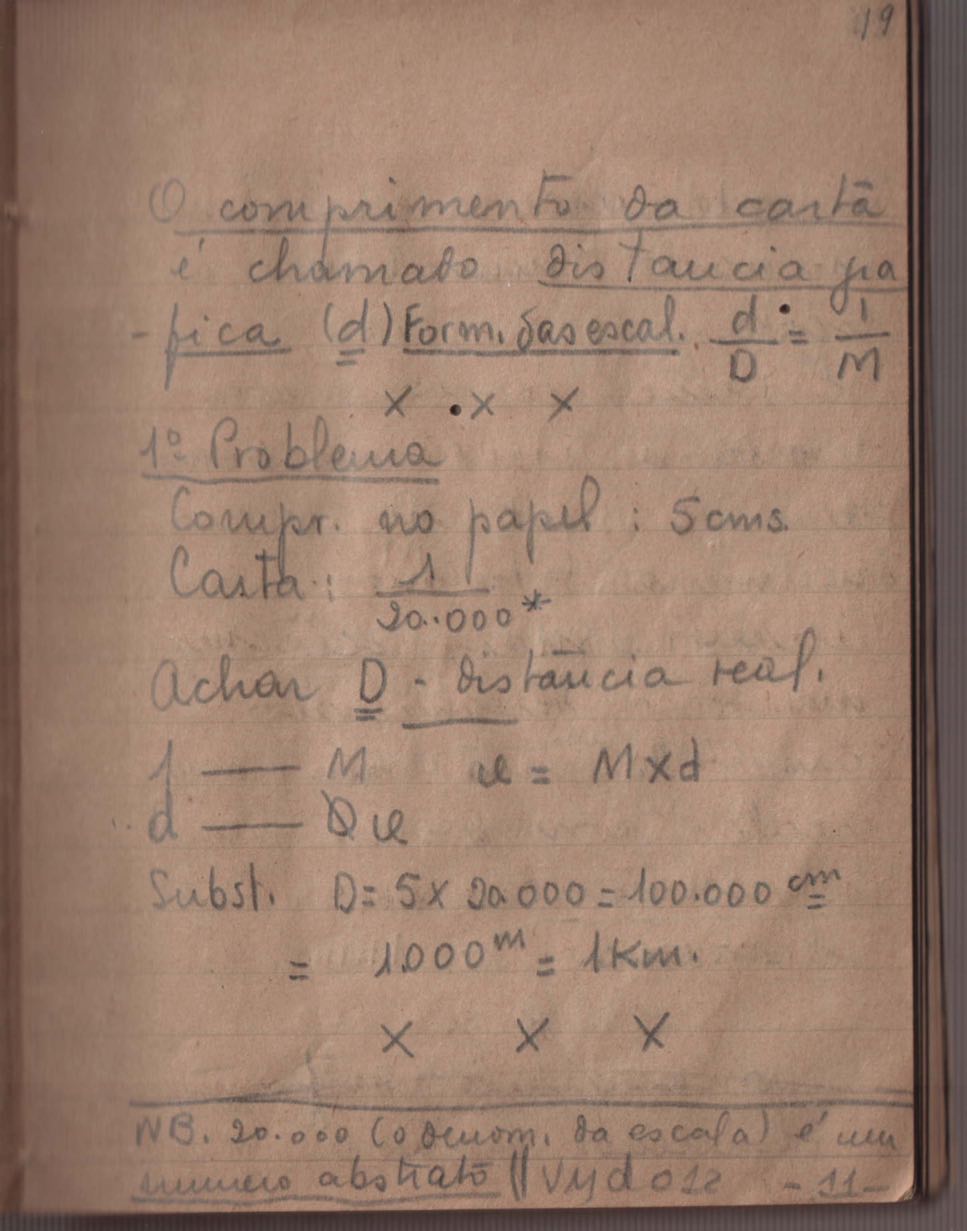 19
O comprimento da carta
é chamado distancia gra
-fica (d) Form. das escal. d/D = 1/M
x x x
1º Problema
Compr. no papel : 5 cms.
Carta : 1/20.000 *
Achar D - distância real.
1 — M x = M x d
d — x
Subst. D = 5 x 20.000 = 100.000 cm
= 1.000 m = 1 Km.
x x x
NB. 20.000 (o denom. da escala) é um
numero abstrato || - 11 -